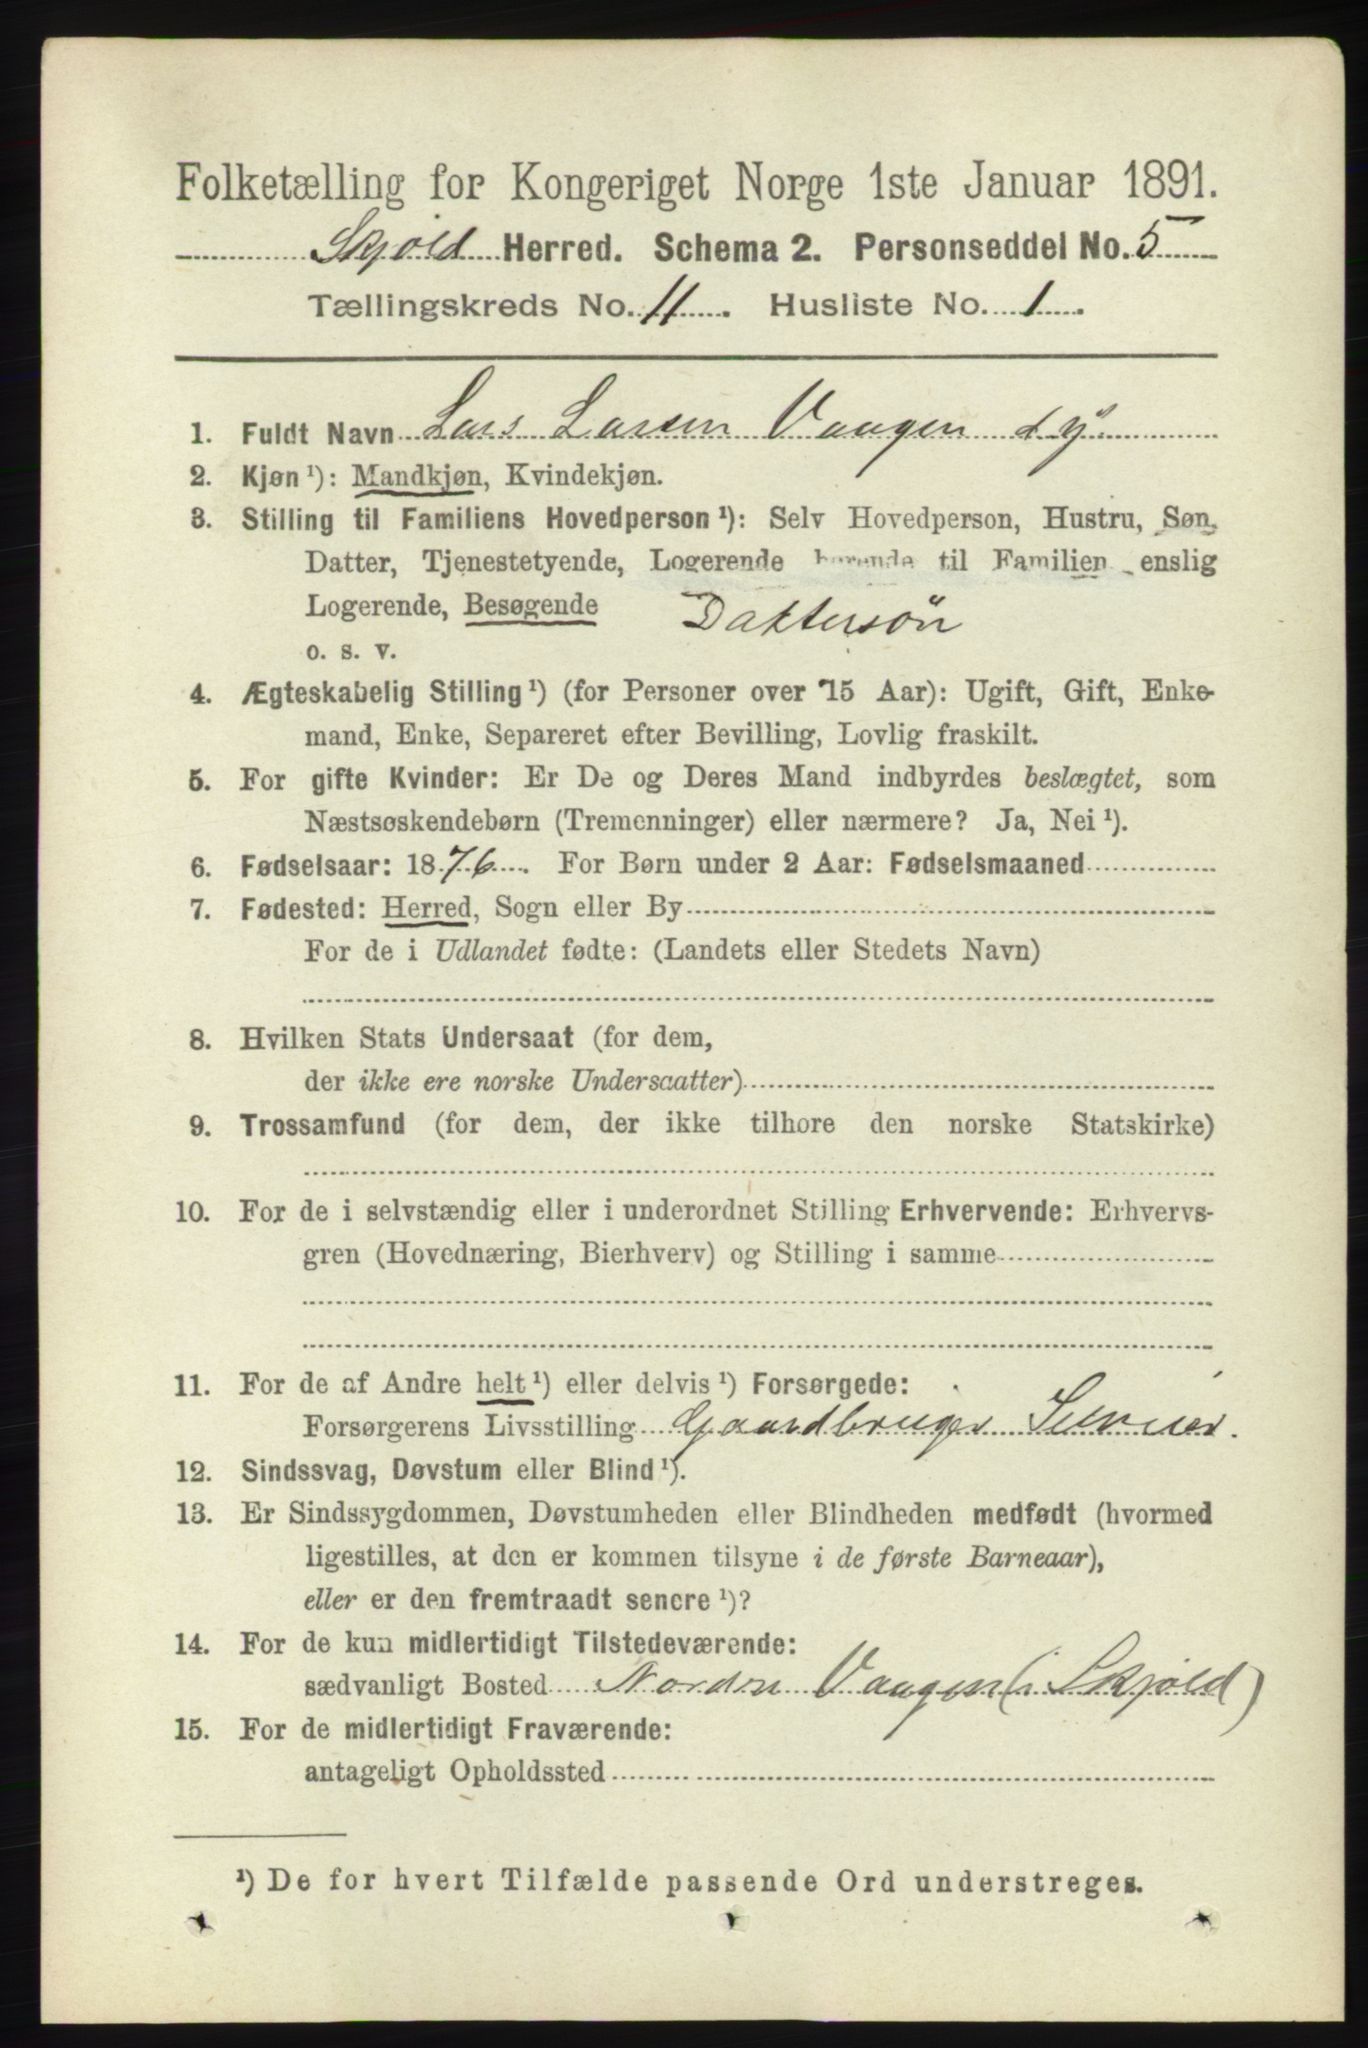 Folketælling for Kongeriget Norge 1ste Januar 1891.
Skjold Herred. Schema 2. Personseddel No. 5
Tællingskreds No. 11. Husliste No. 1.
1. Fuldt Navn Lars Larsen Vaagen
2. Kjøn ¹): Mandkjøn, Kvindekjøn.
3. Stilling til Familiens Hovedperson ¹): Selv Hovedperson, Hustru, Søn,
Datter, Tjenestetyende, Logerende hørende til Familien, enslig
Logerende, Besøgende Dattersön
o. s. v.
4. Ægteskabelig Stilling ¹) (for Personer over 15 Aar): Ugift, Gift, Enke-
mand, Enke, Separeret efter Bevilling, Lovlig fraskilt.
5. For gifte Kvinder: Er De og Deres Mand indbyrdes beslægtet, som
Næstsøskendebørn (Tremenninger) eller nærmere? Ja, Nei ¹).
6. Fødselsaar: 1876. For Børn under 2 Aar: Fødselsmaaned
7. Fødested: Herred, Sogn eller By
For de i Udlandet fødte: (Landets eller Stedets Navn)
8. Hvilken Stats Undersaat (for dem,
der ikke ere norske Undersaatter)
9. Trossamfund (for dem, der ikke tilhøre den norske Statskirke)
10. For de i selvstændig eller i underordnet Stilling Erhvervende: Erhvervs-
gren (Hovednæring, Bierhverv) og Stilling i samme
11. For de af Andre helt ¹) eller delvis ¹) Forsørgede:
Forsørgerens Livsstilling Gaardbruger
12. Sindssvag, Døvstum eller Blind ¹).
13. Er Sindssygdommen, Døvstumheden eller Blindheden medfødt (hvormed
ligestilles, at den er kommen tilsyne i de første Barneaar),
eller er den fremtraadt senere ¹)?
14. For de kun midlertidigt Tilstedeværende:
sædvanligt Bosted Nordre Vaagen (i Skjold)
15. For de midlertidigt Fraværende:
antageligt Opholdssted
¹) De for hvert Tilfælde passende Ord understreges.